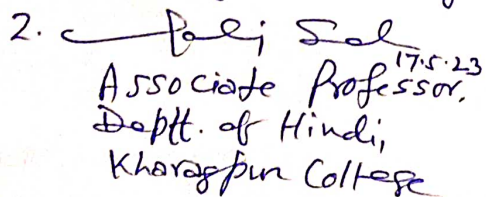 2.
17.5.23
Associate Professor,
Deptt. of Hindi,
Kharagpur College